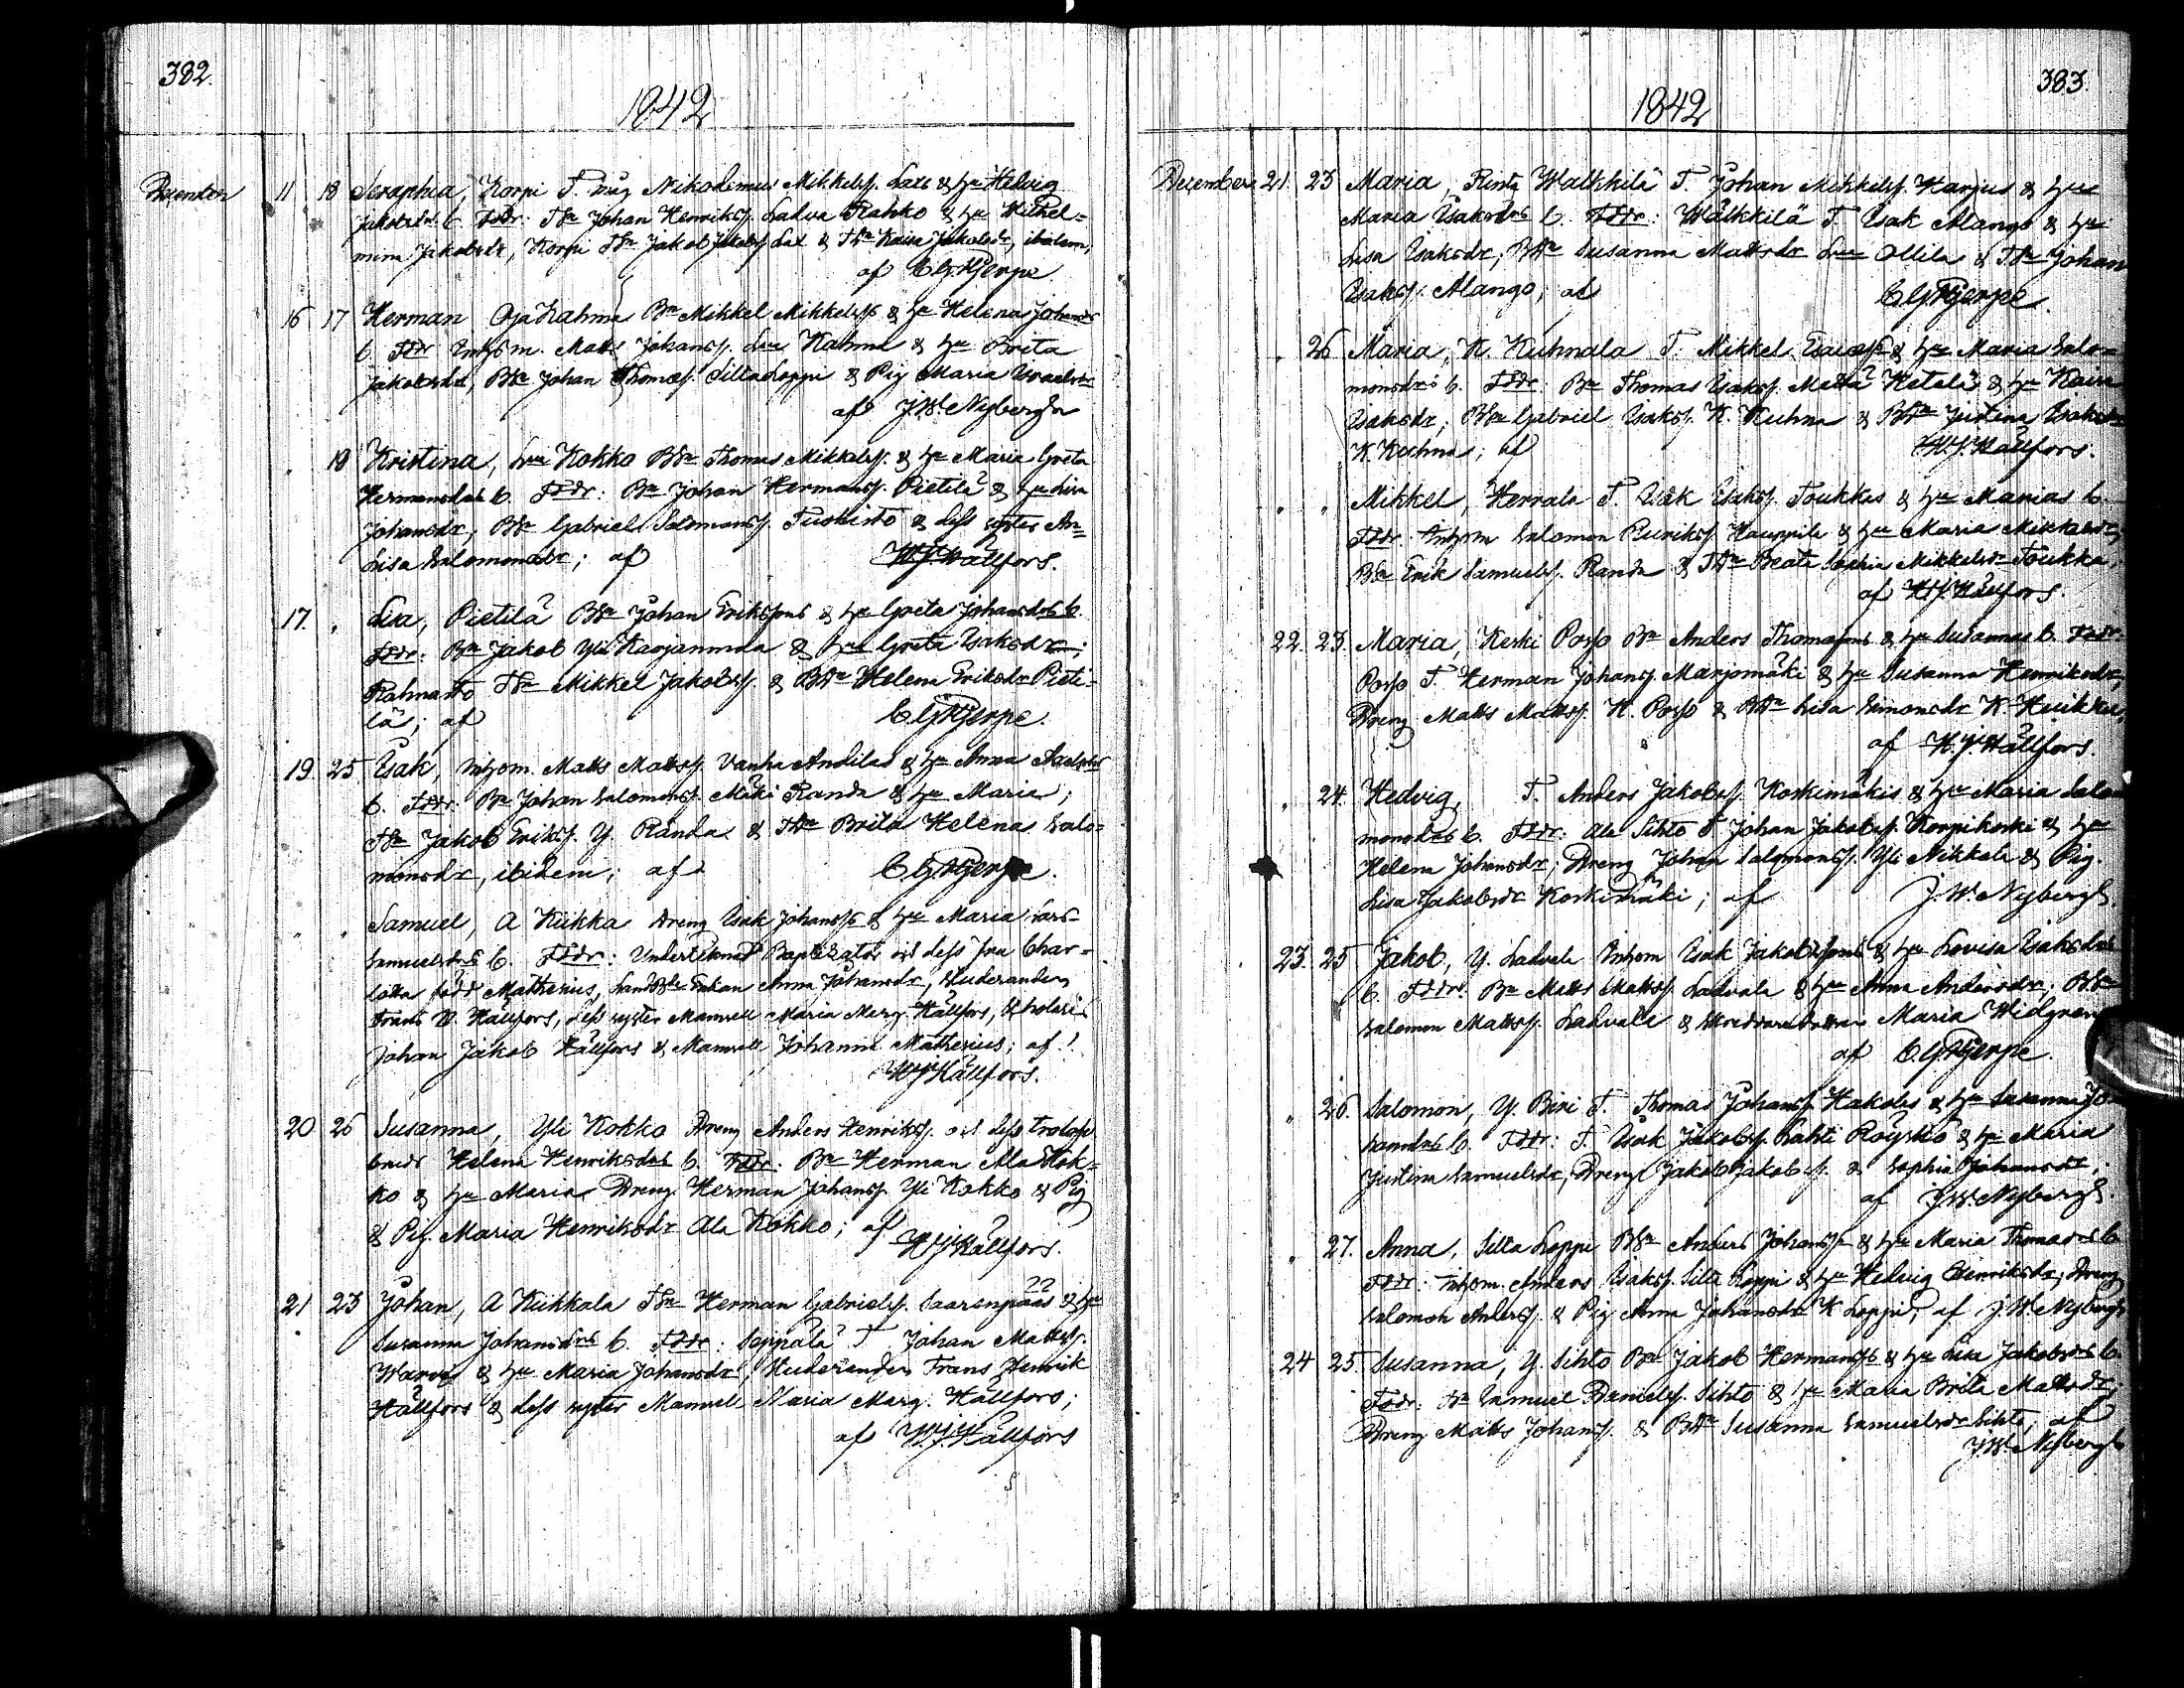 382.
1842
December 11 18 Seraphia, Korpi T. måg Nikodemus Mikkelss. Lass & hu Hedvig
Jakobsdrs b. Fddr: TSn Johan Henrikss. Ladva Rahko & hu Vilhel-
mina Jakobsdr, Korpi TSn Jakob Jakobss Lax & TDr Kaisa Jakobsdr, ibidem;
af C G Hjerpe
16 17 Herman Oja Kahma Bn Mikkel Mikkelss & hu Helena Johansdrs
b. Fddr Inhsm. Matts Johanss. Kahma & hu Brita
Jakobsdr, BSn Johan Thomæss. Silta Loppi & Pig Maria Israelsdr
af J. W. Nybergh
" 18 Kristina, Kokko BSn Thomas Mikkelss. & hu Maria Greta
Hermansdrs b. Fddr: Bn Johan Hermanss. Pietilä & hu Lisa
Johansdr; BSn Gabriel Salomonss. Tuohisto & dess syster An-
Lisa Salomonsdr; af H J Hällfors.
17. " Lisa, Pietilä BSn Johan Erikssons & hu Greta Johansdrs b.
Fddr: Bn Jakob Yli Karjanmaa & hu Greta Isaksdr;
Rahnasto TSn Mikkel Jakobss. & BDr Helena Eriksdr Pieti-
lä; af C G Hjerpe.
19 25 Isak, Inhsm. Matts Mattss. Vanha Andilas & hu Anna Axelsdrs
b. Fddr: Bn Johan Salomonss. Mäki Randa & hu Maria;
TSn Jakob Erikss. Y. Randa & TDr Brita Helena Salo-
monsdr, ibidem; af C G Hjerpe.
" " Samuel, A Kiikka Dreng Isak Johanss & hu Maria
Samuelsdrs b. Fddr: Undertecknad Baptizator och dess fru Char-
lotta född Mathesius, Enkan Anna Johansdr, Studeranden
Frans H. Hällfors, dess syster Mamsell Maria Marg. Hällfors, Scholaris
Johan Jakob Hällfors & Mamsell Johanna Mathesius; af!
H J Hällfors.
20 26 Susanna, Yli Kokko Dreng Anders Henrikss. och dess trolof
brud Helena Henriksdrs b. Fddr: Bn Herman Ala Kok-
ko & hu Maria, Dreng Herman Johanss. Yli Kokko & Pig
& Pig. Maria Henriksdr Ala Kokko; af
H J Hällfors.
21 23 Johan, A Kiikkala TSn Herman Gabrielss. Saarenpääs & hu
Susanna Johansdrs b. Fddr: Seppälä T Johan Mattss.
& hu Maria Johansdr, Studeranden Frans Henrik
Hällfors & dess syster Mamsell Maria Marg. Hällfors;
af H J Hällfors
383.
1842
December 21. 23 Maria, Rinta Walkkilä T. Johan Mikkelss. Harjus & hu
Maria Isaksdrs b. Fddr: Walkkilä T Isak Alango & hu
Lisa Isaksdr; BDr Susanna Mattsdr Ollila & TSn Johan
Isakss. Alango; af C G Hjerpe.
" 26 Maria, K. Kuhnala T. Mikkel & hu Maria Salo-
monsdrs b. Fddr: Bn Thomas Isakss. Hetala & hu Kaisa
Isaksdr; BSn Gabriel Isakss. K. Kuhna & BDr Justina Isaksdr
K. Kuhna; af H. J. Hällfors.
" " Mikkel, Herrala T. Isak Isakss. Toukkas & hu Marias b.
Fddr. Inhsm Salomon Haapsila & hu Maria Mikkelsdr,
BSn Erik Samuelss. Randa & TDr Beata Sophia Mikkelsdr Toukka,
af H J Hällfors.
22. 23. Maria, Keski Passo Bn Anders Thomassons & hu Susannas b. Fddr:
T. Herman Johanss Marjomäki & hu Susanna Henriksdr,
Dreng Matts Mattss. & BDr Lisa Simonsdr
af H. J. Hällfors.
" 24. Hedvig, T. Anders Jakobss. Koskimäkis & hu Maria Salo
monsdrs b. Fddr: Ala Sihto T Johan Jakobss. Korpikoski & hu
Helena Johansdr; Dreng Johan Salomonss. Yli Nikkola & Pig.
Lisa Jakobsdr Koskimäki; af J. W. Nybergh.
23. 25 Jakob, Y. Ladvala Inhsm Isak Jakobssons & hu Lovisa Isaksdrs
b. Fddr: Bn Matts Mattss. Ladvala & hu Anna Andersdr; BSn
Salomon Mattss. Ladvala & Maria Widgren,
af C G Hjerpe.
" 26. Salomon, Y. T. Thomas Johanss. Hakolas & hu Susanna Jo
hansdrs b. Fddr: T. Isak Jakobss. Lahti Röyskö & hu Maria
Justina Samuelsdr, Dreng Jakob Jakobss. & Sophia Johansdr,
af J. W. Nybergh.
" 27. Anna, Silta Loppi BSn Anders Johanss & hu Maria Thomasdrs b
Fddr: Inhsm. Anders Isakss. Silta Loppi & hu Hedvig Henriksdr; Dreng
Salomon Anderss. & Pig Anna Johansdr K Loppi; af J. W. Nybergh
24 25. Susanna, Y. Sihto Bn Jakob Hermanss & hu Lisa Jakobsdrs b.
Fddr: Bn Samuel Danielss. Sihto & hu Maria Brita Mattsdr;
Dreng Matts Johanss. & BDr Susanna Samuelsdr Sihto; af
J. W. Nybergh